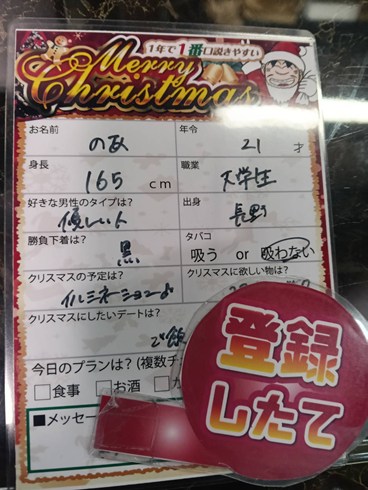 1年で1番口説きやすい
Merry
Christmas
お名前 のあ 年令 21 才
身長 165 cm 職業 大学生
好きな男性のタイプは? 優しい人 出身 長野
勝負下着は? 黒 タバコ 吸う or 吸わない
クリスマスの予定は? イルミネーション クリスマスに欲しい物は?
クリスマスにしたいデートは?
ご飯
今日のプランは? (複数チ
□食事 □お酒 □
■メッセー
登録
したて